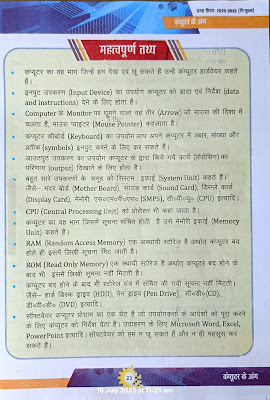 कंप्यूटर के अंग
महत्वपूर्ण तथ्य
कंप्यूटर का वह भाग जिन्हें हम देख एवं छू सकते हैं उन्हें कंप्यूटर हार्डवेयर कहते
हैं।
इनपुट उपकरण (Input Device) का उपयोग कंप्यूटर को डाटा एवं निर्देश (data
and instructions) देने के लिए होता है।
Computer के Monitor पर घूमने वाला वह तीर (Arrow) जो माउस की दिशा में
चलता है, माउस प्वाइंटर (Mouse Pointer) कहलाता है।
कंप्यूटर कीबोर्ड (Keyboard) का उपयोग आप अपने कंप्यूटर में अक्षर, संख्या और
प्रतीक (symbols) इनपुट करने के लिए कर सकते हैं।
आउटपुट उपकरण का उपयोग कंप्यूटर के द्वारा किये गये कार्य (प्रोसेसिंग) का
परिणाम (output) दिखाने के लिए होता है।
बहुत सारे उपकरणों के समूह को सिस्टम इकाई (System Unit) कहते हैं
जैसे– मदर बोर्ड (Mother Board), साउंड कार्ड (Sound Card), डिस्प्ले कार्ड
(Display Card), मेमोरी, एस०एम०पी०एस० SMPS), सी०पी०यू० (CPU) इत्यादि।
CPU (Central Processing Unit) को प्रोसेसर भी कहा जाता है।
कंप्यूटर का वह भाग जिसमें सूचना संचित होती है उसे मेमोरी इकाई (Memory
Unit) कहते हैं।
RAM (Random Access Memory) एक अस्थायी स्टोरेज है अर्थात् कंप्यूटर बंद
होते ही इसमें लिखी सूचना मिट जाती है।
ROM (Read Only Memory) एक स्थायी स्टोरेज है अर्थात् कंप्यूटर बंद होने के
बाद भी इसमें लिखी सूचना नहीं मिटती है।
कंप्यूटर बंद होने के बाद भी स्टोरेज यंत्र में संचित की गयी सूचना नहीं मिटती।
जैसे– हार्ड डिस्क ड्राइव (HDD), पेन ड्राइव (Pen Drive), सी०डी०(CD),
डी०वी०डी० (DVD) इत्यादि।
सॉफ्टवेयर कंप्यूटर प्रोग्राम का एक सेट है जो उपयोगकर्ता के आदेशों को पूरा करने
के लिए कंप्यूटर को निर्देश देता है। उदाहरण के लिए Microsoft Word, Excel,
PowerPoint इत्यादि।सॉफ्टवेयर को हम न छू सकते हैं और न ही महसूस कर
सकते हैं।
23
कंप्यूटर के अंग
16 July 2025 at 11:25 am